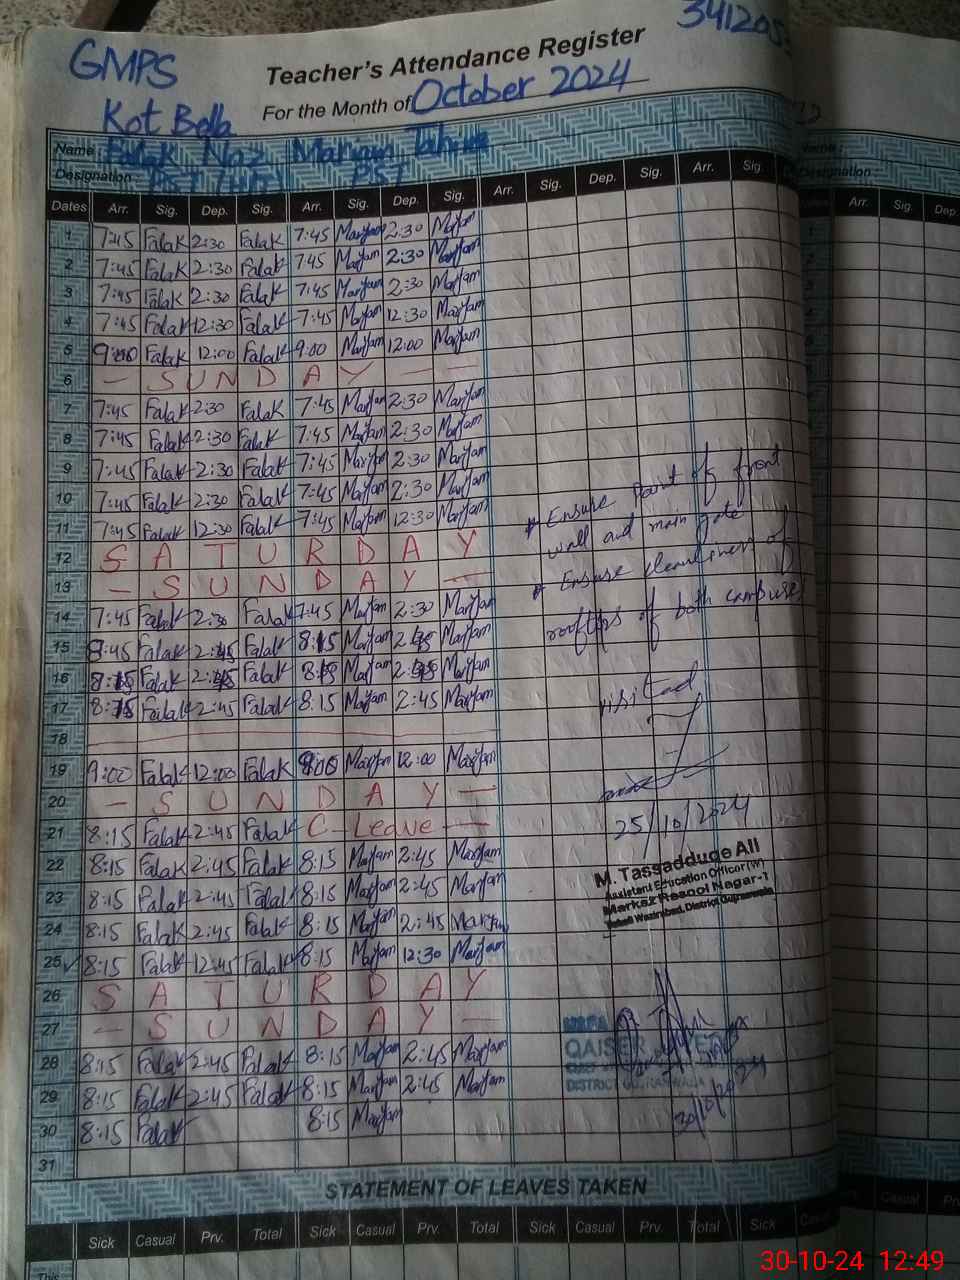 GMPS
Kot Bella
Teacher's Attendance Register
For the Month of October 2024
Name : Falak Naz Maryam Tahira
Designation PST (H/T) PST
Dates Arr. Sig. Dep. Sig. Arr. Sig. Dep. Sig. Arr. Sig. Dep. Sig. Arr. Sig
1 7:45 Falak 2:30 Falak 7:45 Maryam 2:30 Maryam
2 7:45 Falak 2:30 Falak 7:45 Maryam 2:30 Maryam
3 7:45 Falak 2:30 Falak 7:45 Maryam 2:30 Maryam
4 7:45 Falak 12:30 Falak 7:45 Maryam 12:30 Maryam
5 9:00 Falak 12:00 Falak 9:00 Maryam 12:00 Maryam
6 — SUNDAY — —
7 7:45 Falak 2:30 Falak 7:45 Maryam 2:30 Maryam
8 7:45 Falak 2:30 Falak 7:45 Maryam 2:30 Maryam
9 7:45 Falak 2:30 Falak 7:45 Maryam 2:30 Maryam
10 7:45 Falak 2:30 Falak 7:45 Maryam 2:30 Maryam
11 7:45 Falak 12:30 Falak 7:45 Maryam 12:30 Maryam
12 SATURDAY
13 — SUNDAY —
14 7:45 Falak 2:30 Falak 7:45 Maryam 2:30 Maryam
15 8:45 Falak 2:45 Falak 8:15 Maryam 2:45 Maryam
16 8:15 Falak 2:45 Falak 8:15 Maryam 2:45 Maryam
17 8:15 Falak 2:45 Falak 8:15 Maryam 2:45 Maryam
18
19 9:00 Falak 12:00 Falak 9:00 Maryam 12:00 Maryam
20 — SUNDAY —
21 8:15 Falak 2:45 Falak C-Leave —
22 8:15 Falak 2:45 Falak 8:15 Maryam 2:45 Maryam
23 8:15 Falak 2:45 Falak 8:15 Maryam 2:45 Maryam
24 8:15 Falak 2:45 Falak 8:15 Maryam 2:45 Maryam
25 8:15 Falak 12:45 Falak 8:15 Maryam 12:30 Maryam
26 SATURDAY
27 — SUNDAY —
28 8:15 Falak 2:45 Falak 8:15 Maryam 2:45 Maryam
29 8:15 Falak 2:45 Falak 8:15 Maryam 2:45 Maryam
30 8:15 Falak 8:15 Maryam
31
* Ensure paint of front
wall and main gate
* Ensure cleanliness of
rooftops of both campuses
visited
25/10/2024
M. Tassadduqe Ali
Assistent Education Officer (W)
Markaz Rasool Nagar-1
Tehsil Wazirabad, District Gujranwala
QAISER
DISTRICT GUJRANWALA
30/10/2024
STATEMENT OF LEAVES TAKEN
Sick Casual Prv. Total Sick Casual Prv. Total Sick Casual Prv. Total Sick
This
Arr. Sig. Dep.
Casual
30-10-24 12:49